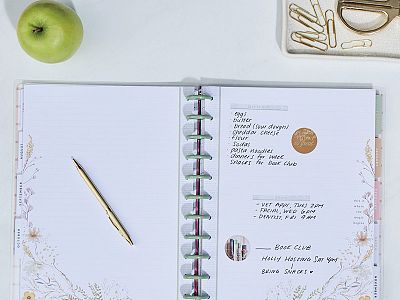 - eggs
- butter
- bread (sour dough)
- cheddar cheese
- flour
- sodas
- pasta noodles
- dinners for week
- snacks for book club
- VET APPT, TUES 2PM
- FACIAL, WED 6PM
- DENTIST, FRI 9AM
BOOK CLUB
HOLLY HOSTING SAT 4PM
BRING SNACKS ♥
AUGUST
SEPTEMBER
OCTOBER